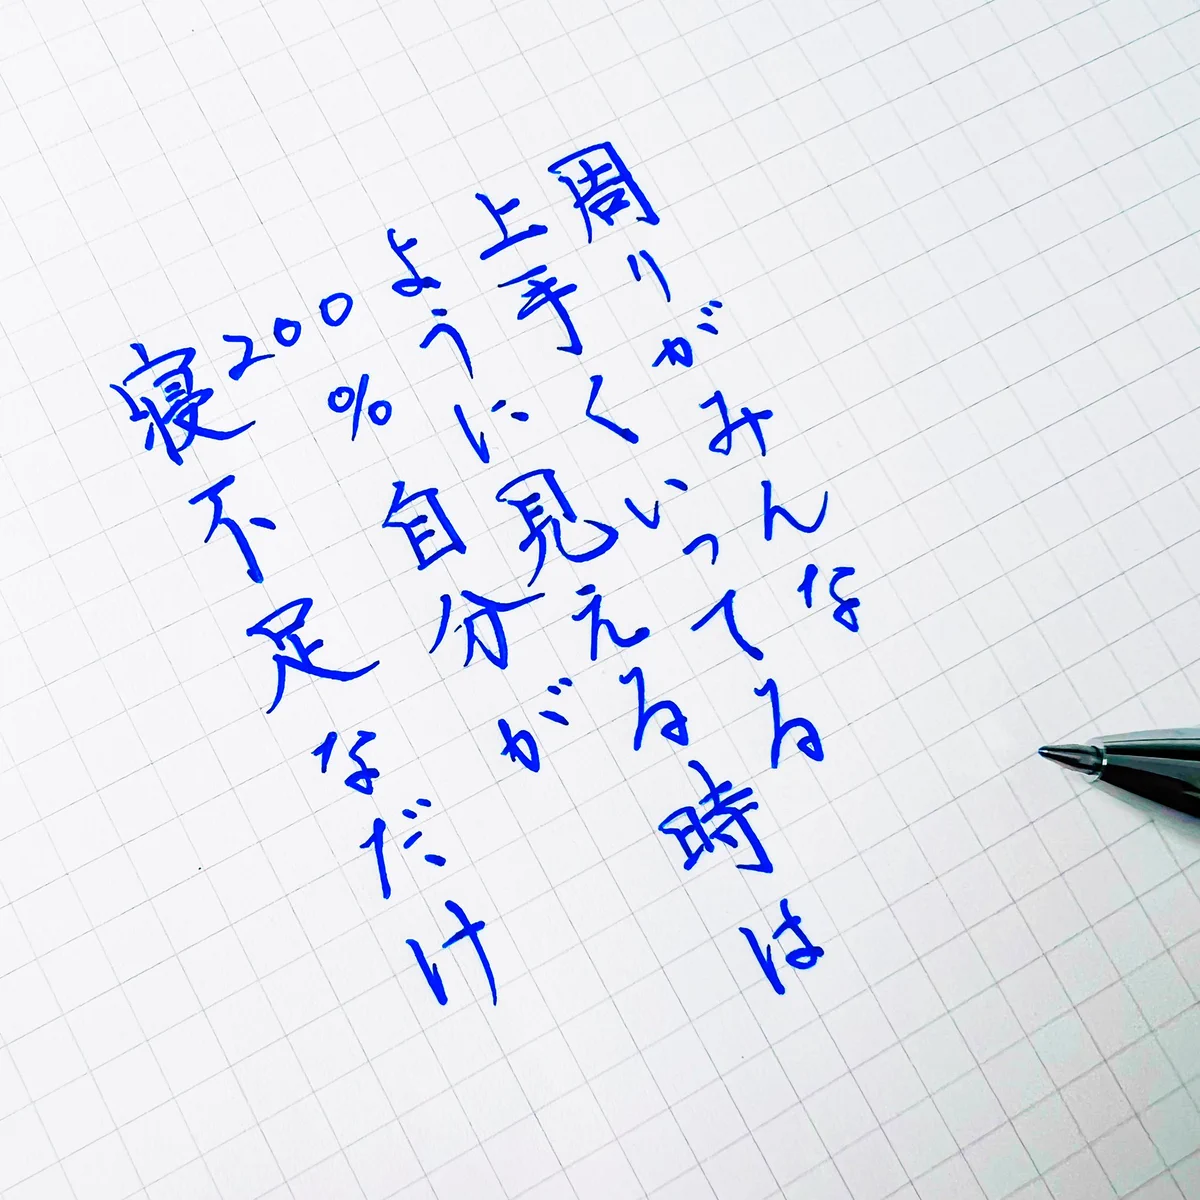 周りがみんな
上手くいってる
ように見える時は
200%自分が
寝不足なだけ